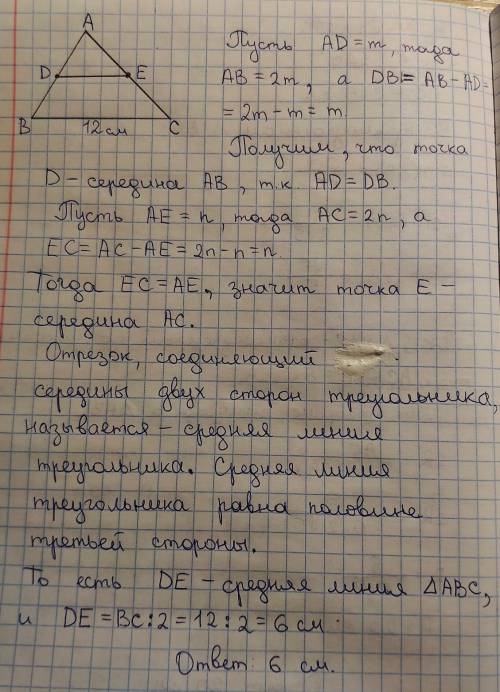 A
D E
B 12 см C
Пусть AD = m, тогда
AB = 2m, а DB = AB - AD =
= 2m - m = m.
Получим, что точка
D - середина AB, т.к. AD = DB.
Пусть AE = n, тогда AC = 2n, а
EC = AC - AE = 2n - n = n.
Тогда EC = AE, значит точка E -
середина AC.
Отрезок, соединяющий
середины двух сторон треугольника,
называется - средняя линия
треугольника. Средняя линия
треугольника равна половине
третьей стороны.
То есть DE - средняя линия △ABC,
и DE = BC : 2 = 12 : 2 = 6 см.
Ответ: 6 см.